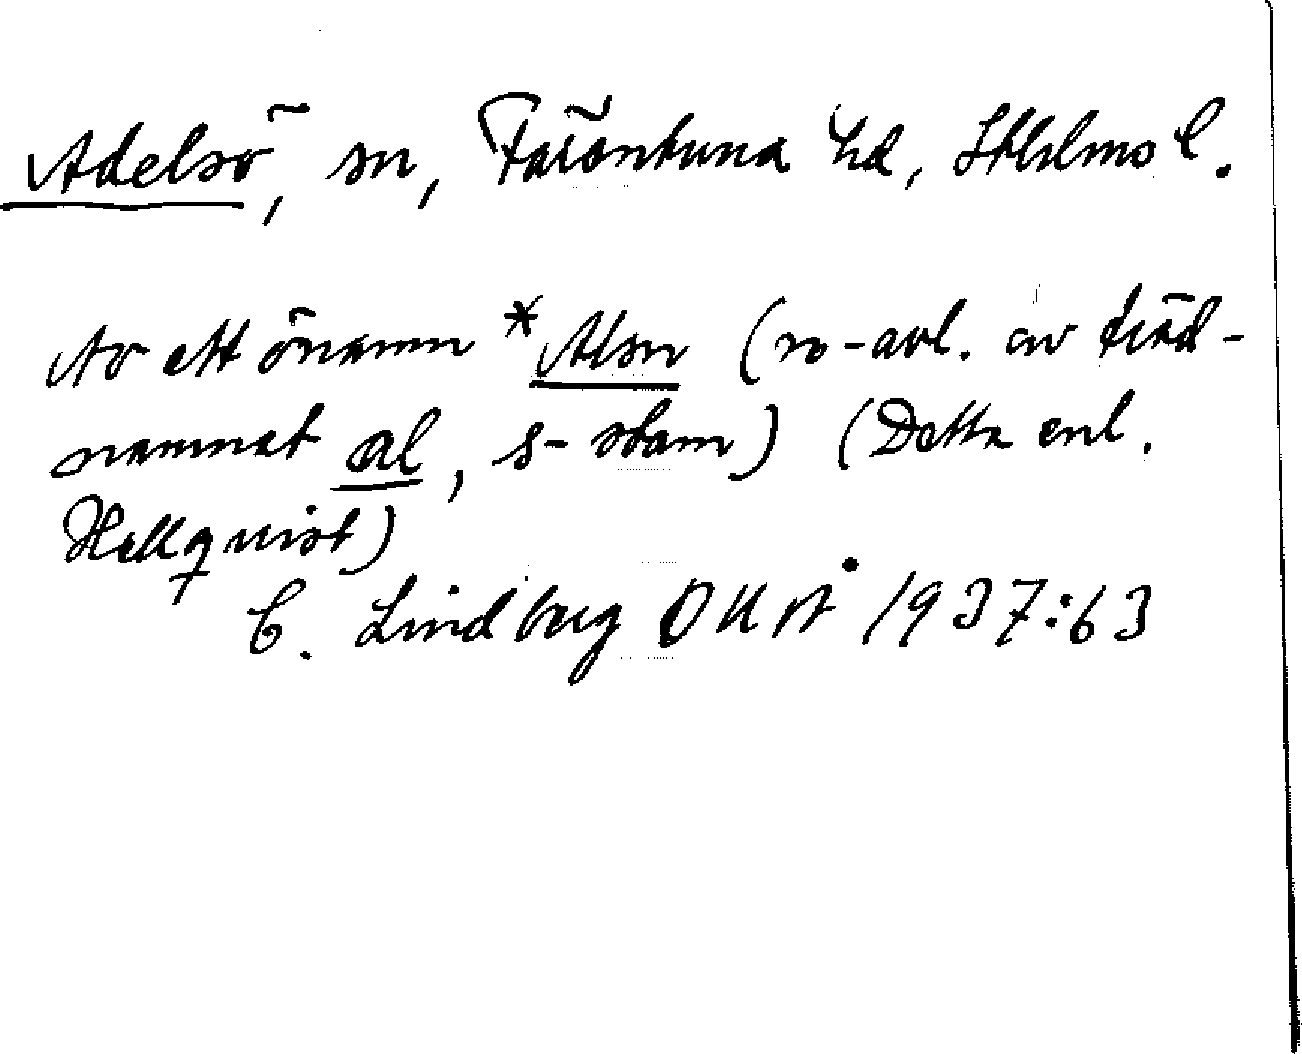 Adelsö, sn, Färentuna hd, Sthlms l.
Av ett önamn *Alsn (n-avl. av träd-
namnet al, s-stam) (Detta enl.
Hellquist)
C. Lindberg DHÅ 1937:63